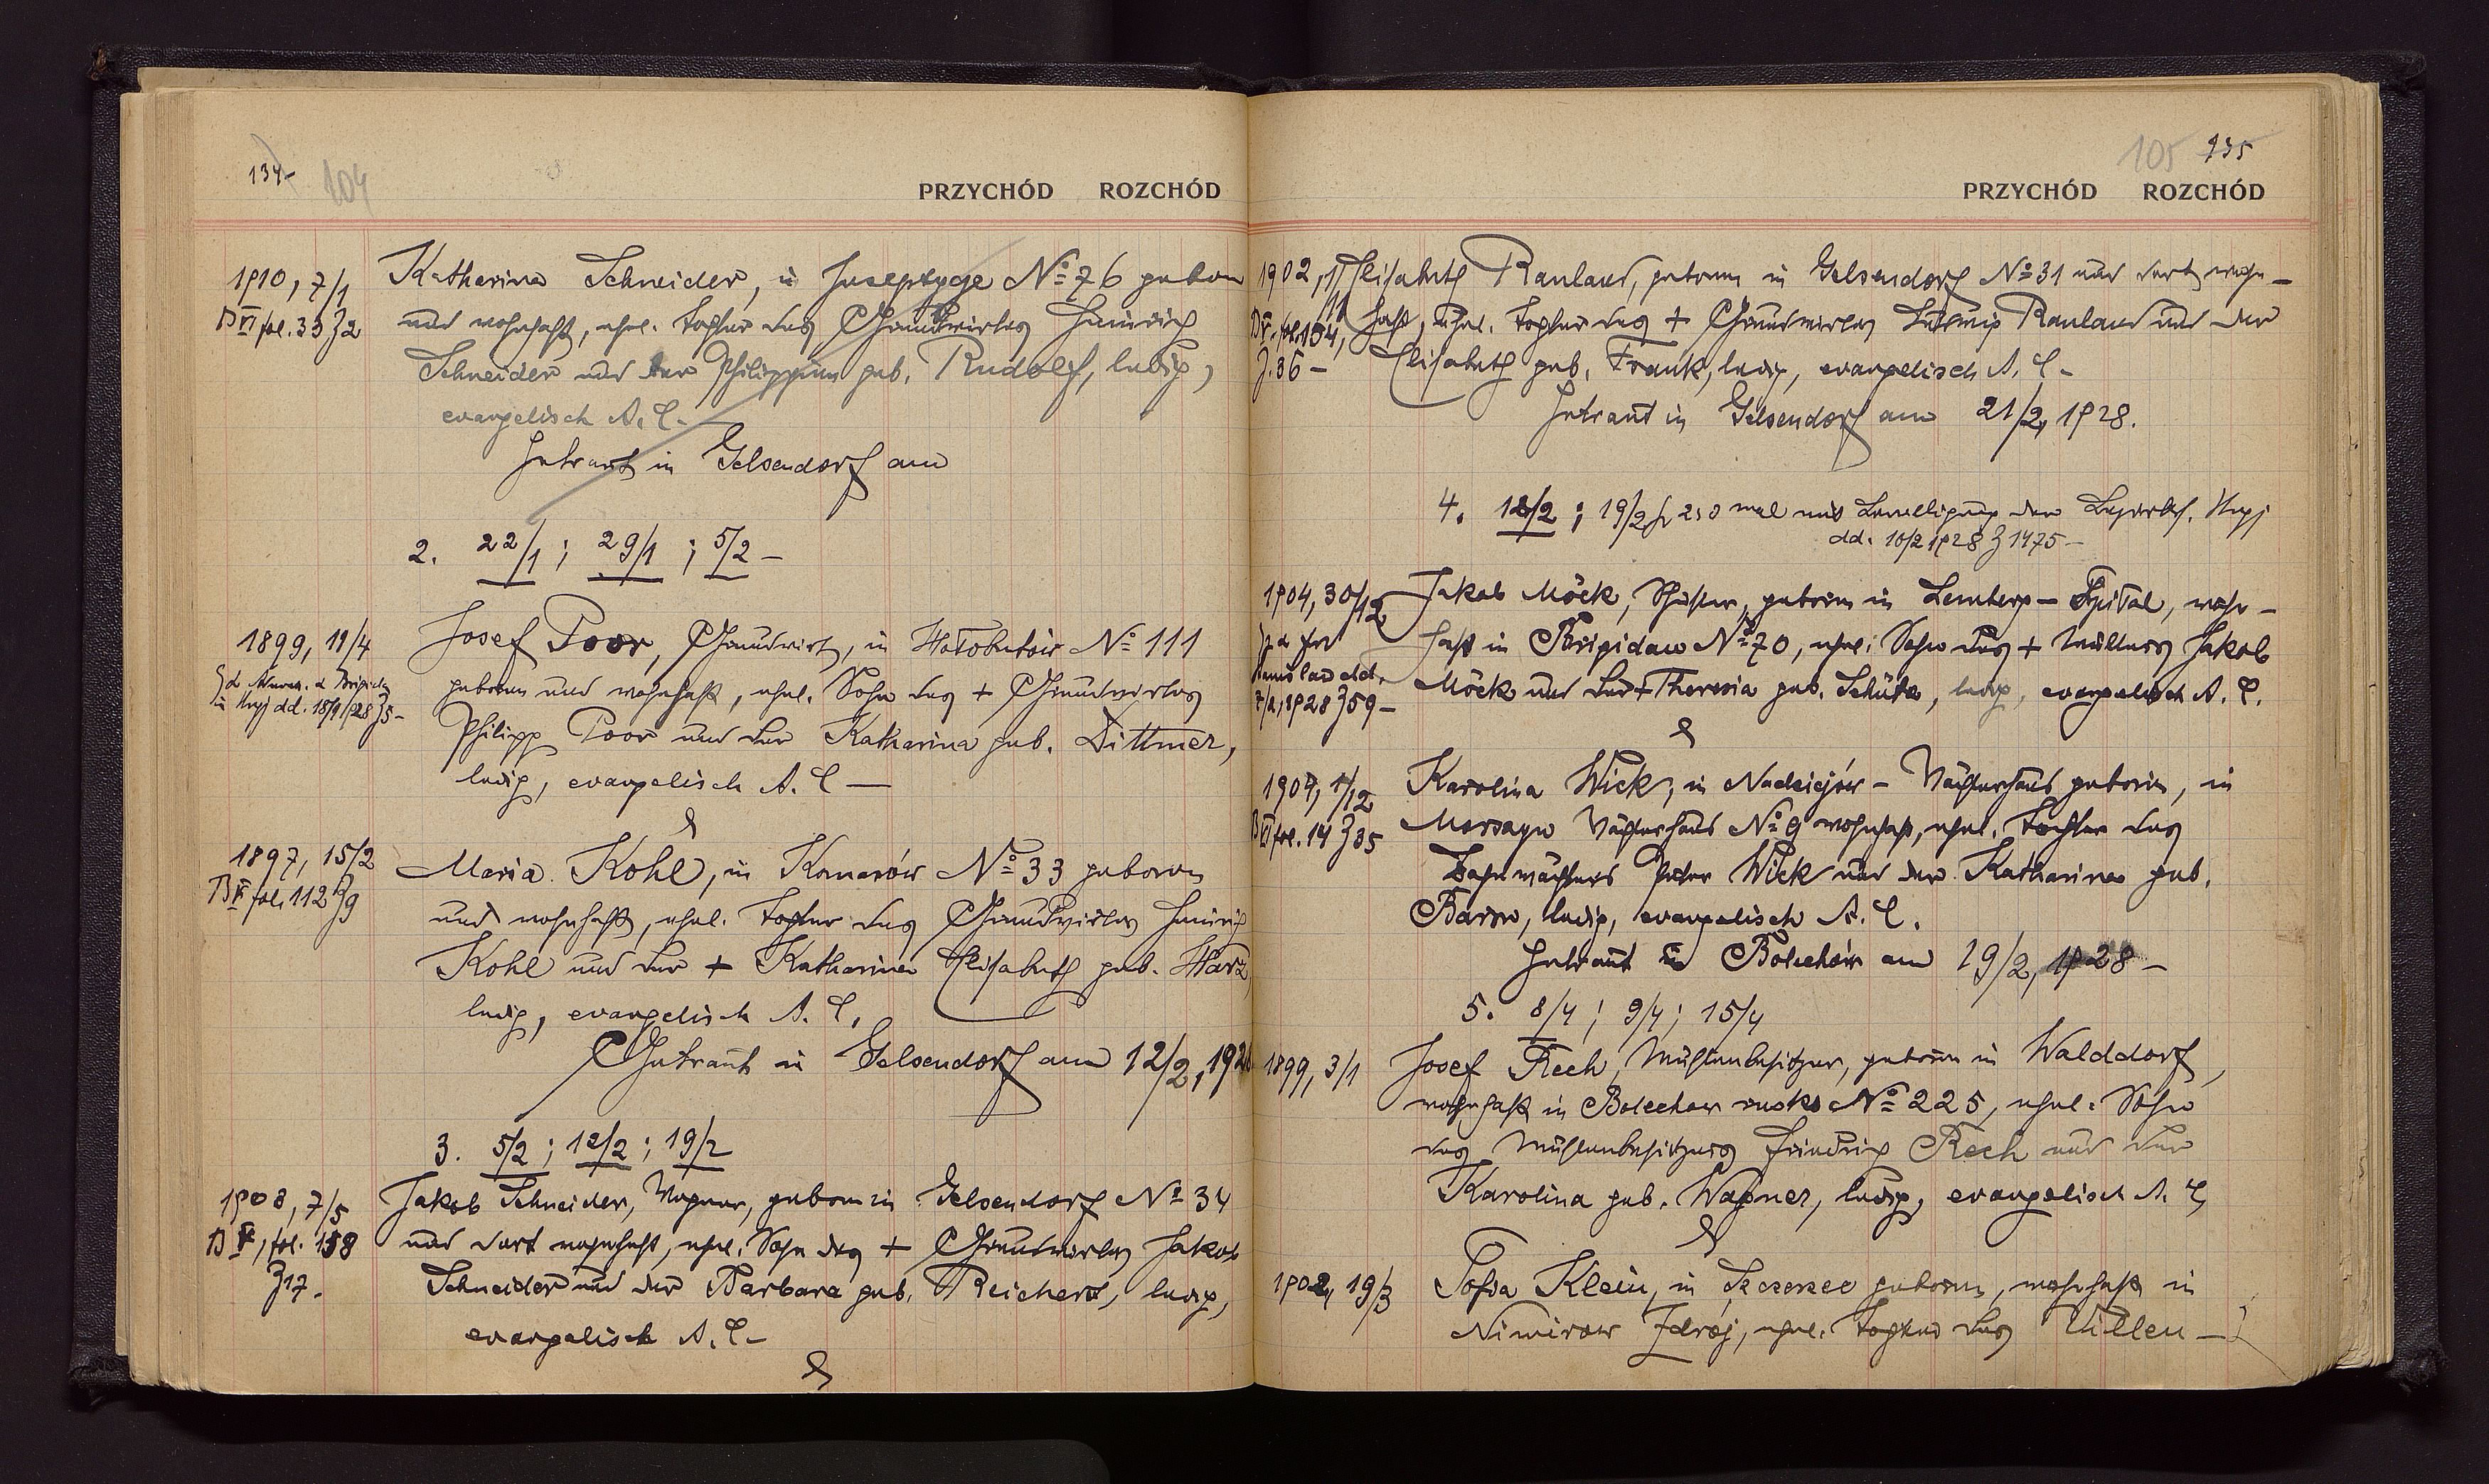 134
104
PRZYCHÓD ROZCHÓD
1910, 7/1
B VI fol. 33 Z 2
Katharina Schneider, in Josephsyge № 76 geboren
und wohnhaft, ehel. Tochter des Grundwirtes Heinrich
Schneider und der Philippine geb. Rudolf, ledig,
evangelisch A. C.-
Getraut in Gelsendorf am
2. 22/1; 29/1; 5/2 -
1899, 11/4
dd. 18/1 1928 Z 5-
Josef Poor, Grundwirt, in Hołobutów № 111
geboren und wohnhaft, ehel. Sohn des + Grundwirtes
Philipp Poor und der Katharina geb. Dittmer,
ledig, evangelisch A. C -
&
1897, 15/2
B V fol. 112 Z 9
Maria Kohl, in Komarów № 33 geboren
und wohnhaft, ehel. Tochter des Grundwirtes Heinrich
Kohl und der + Katharina Elisabeth geb. Harz,
ledig, evangelisch A. C.
Getraut in Gelsendorf am 12/2, 1928
3. 5/2; 12/2; 19/2
1908, 7/5
B V, fol. 158
Z 17.
Jakob Schneider, Wagner, geboren in Gelsendorf № 34
und dort wohnhaft, ehel. Sohn des + Grundwirtes Jakob
Schneider und der Barbara geb. Reichert, ledig,
evangelisch A. C-
&
105 135
PRZYCHÓD ROZCHÓD
1902, 11/11
B V. fol. 134,
Z. 36 -
Elisabeth Ranland, geboren in Gelsendorf № 31 und dort wohn-
haft, ehel. Tochter des + Grundwirtes Ludwig Ranland und der
Elisabeth geb. Frank, ledig, evangelisch A. C-
Getraut in Gelsendorf am 21/2, 1928.
4. 12/2; 19/2 2 & 3 mal mit Bewilligung der
dd. 10/2 1928 Z 1475 -
1904, 30/12
Stanislau dd.
7/2, 1928 Z 59 -
Jakob Möck, Schuster, geboren in Lemberg - Spital, wohn-
haft in Brigidau № 70, ehel. Sohn des + Müllers Jakob
Möck und der + Theresia geb. Schütz, ledig, evangelisch A. C.
&
1907, 1/12
B VI fol. 14 Z 35
Karolina Wick, in Nadziejów - Wächterhaus geboren, in
Morszyn Wächterhaus № 9 wohnhaft, ehel. Tochter des
Bahnwächters Peter Wick und der Katharina geb.
Baron, ledig, evangelisch A. C.
Getraut in Bolechów am 19/2, 1928 -
5. 8/4; 9/4; 15/4
1899, 3/1
Josef Rech, Mühlenbesitzer, geboren in Walddorf,
wohnhaft in Bolechow ruski № 225, ehel. Sohn
des Mühlenbesitzers Friedrich Rech und der
Karolina geb. Wagner, ledig, evangelisch A. C,
&
1902, 19/3
Sofia Klein, in Szczerzec geboren, wohnhaft in
Nimirow Zdrój, ehel. Tochter des Villen-